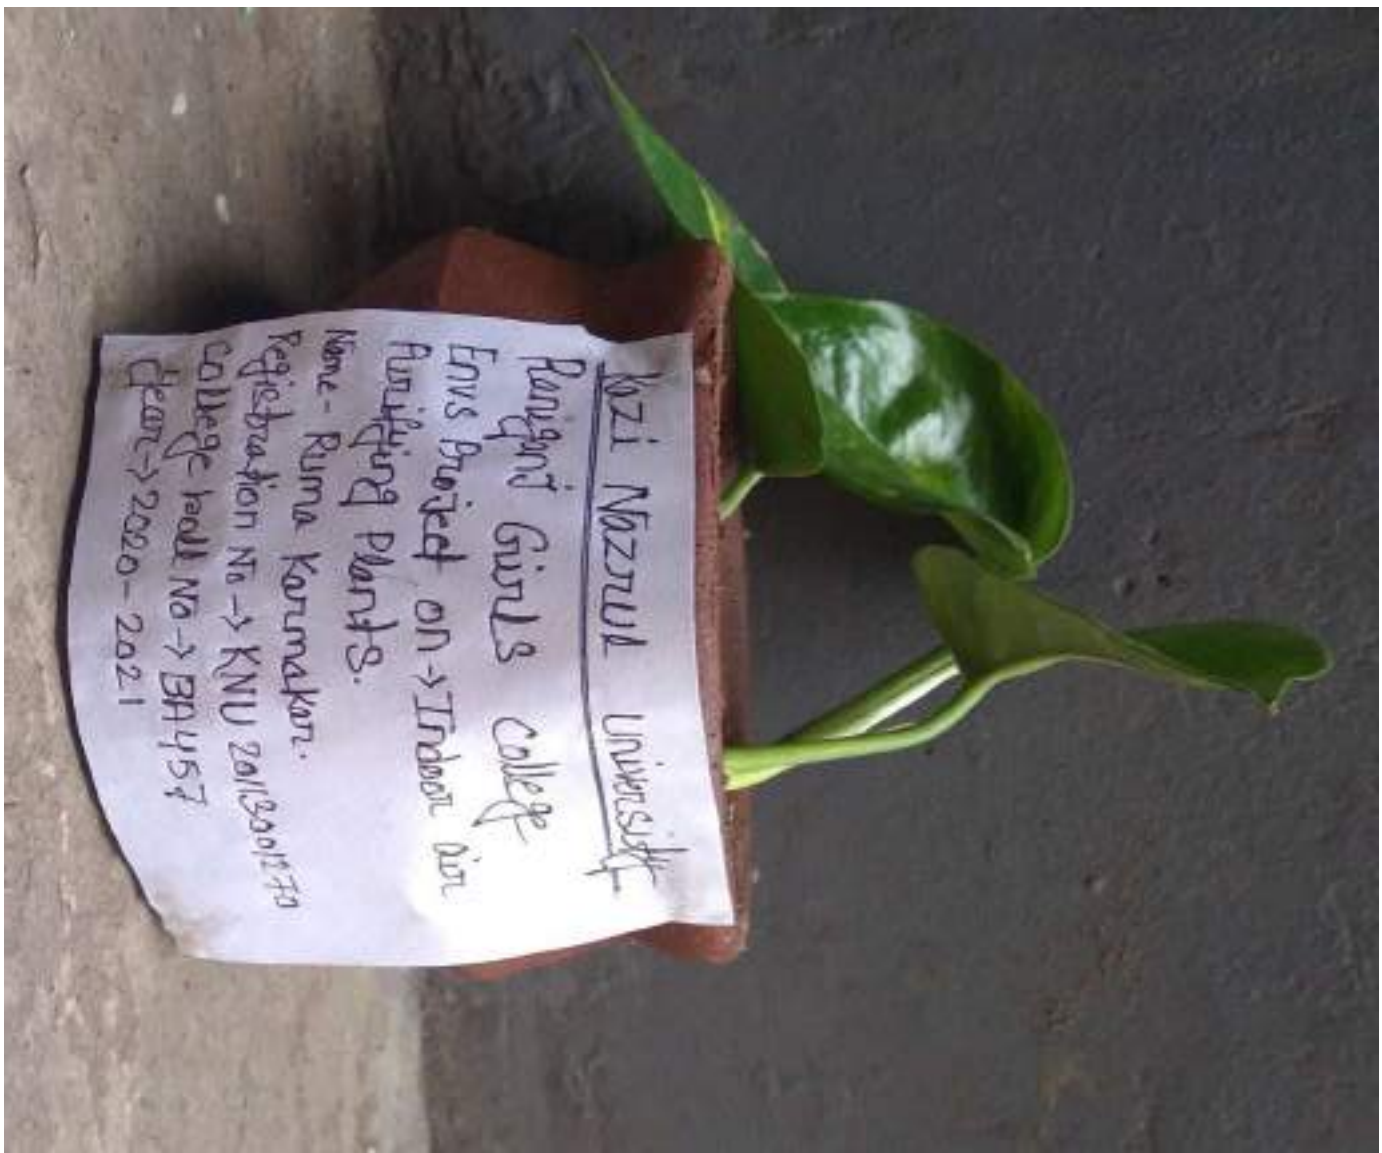 Kazi Nazrul University
Raniganj Girls College
Envs Project on → Indoor air
Purifying Plants.
Name - Ruma Karmakar.
Registration No → KNU 20113001270
College roll No → BA4457
Year → 2020-2021